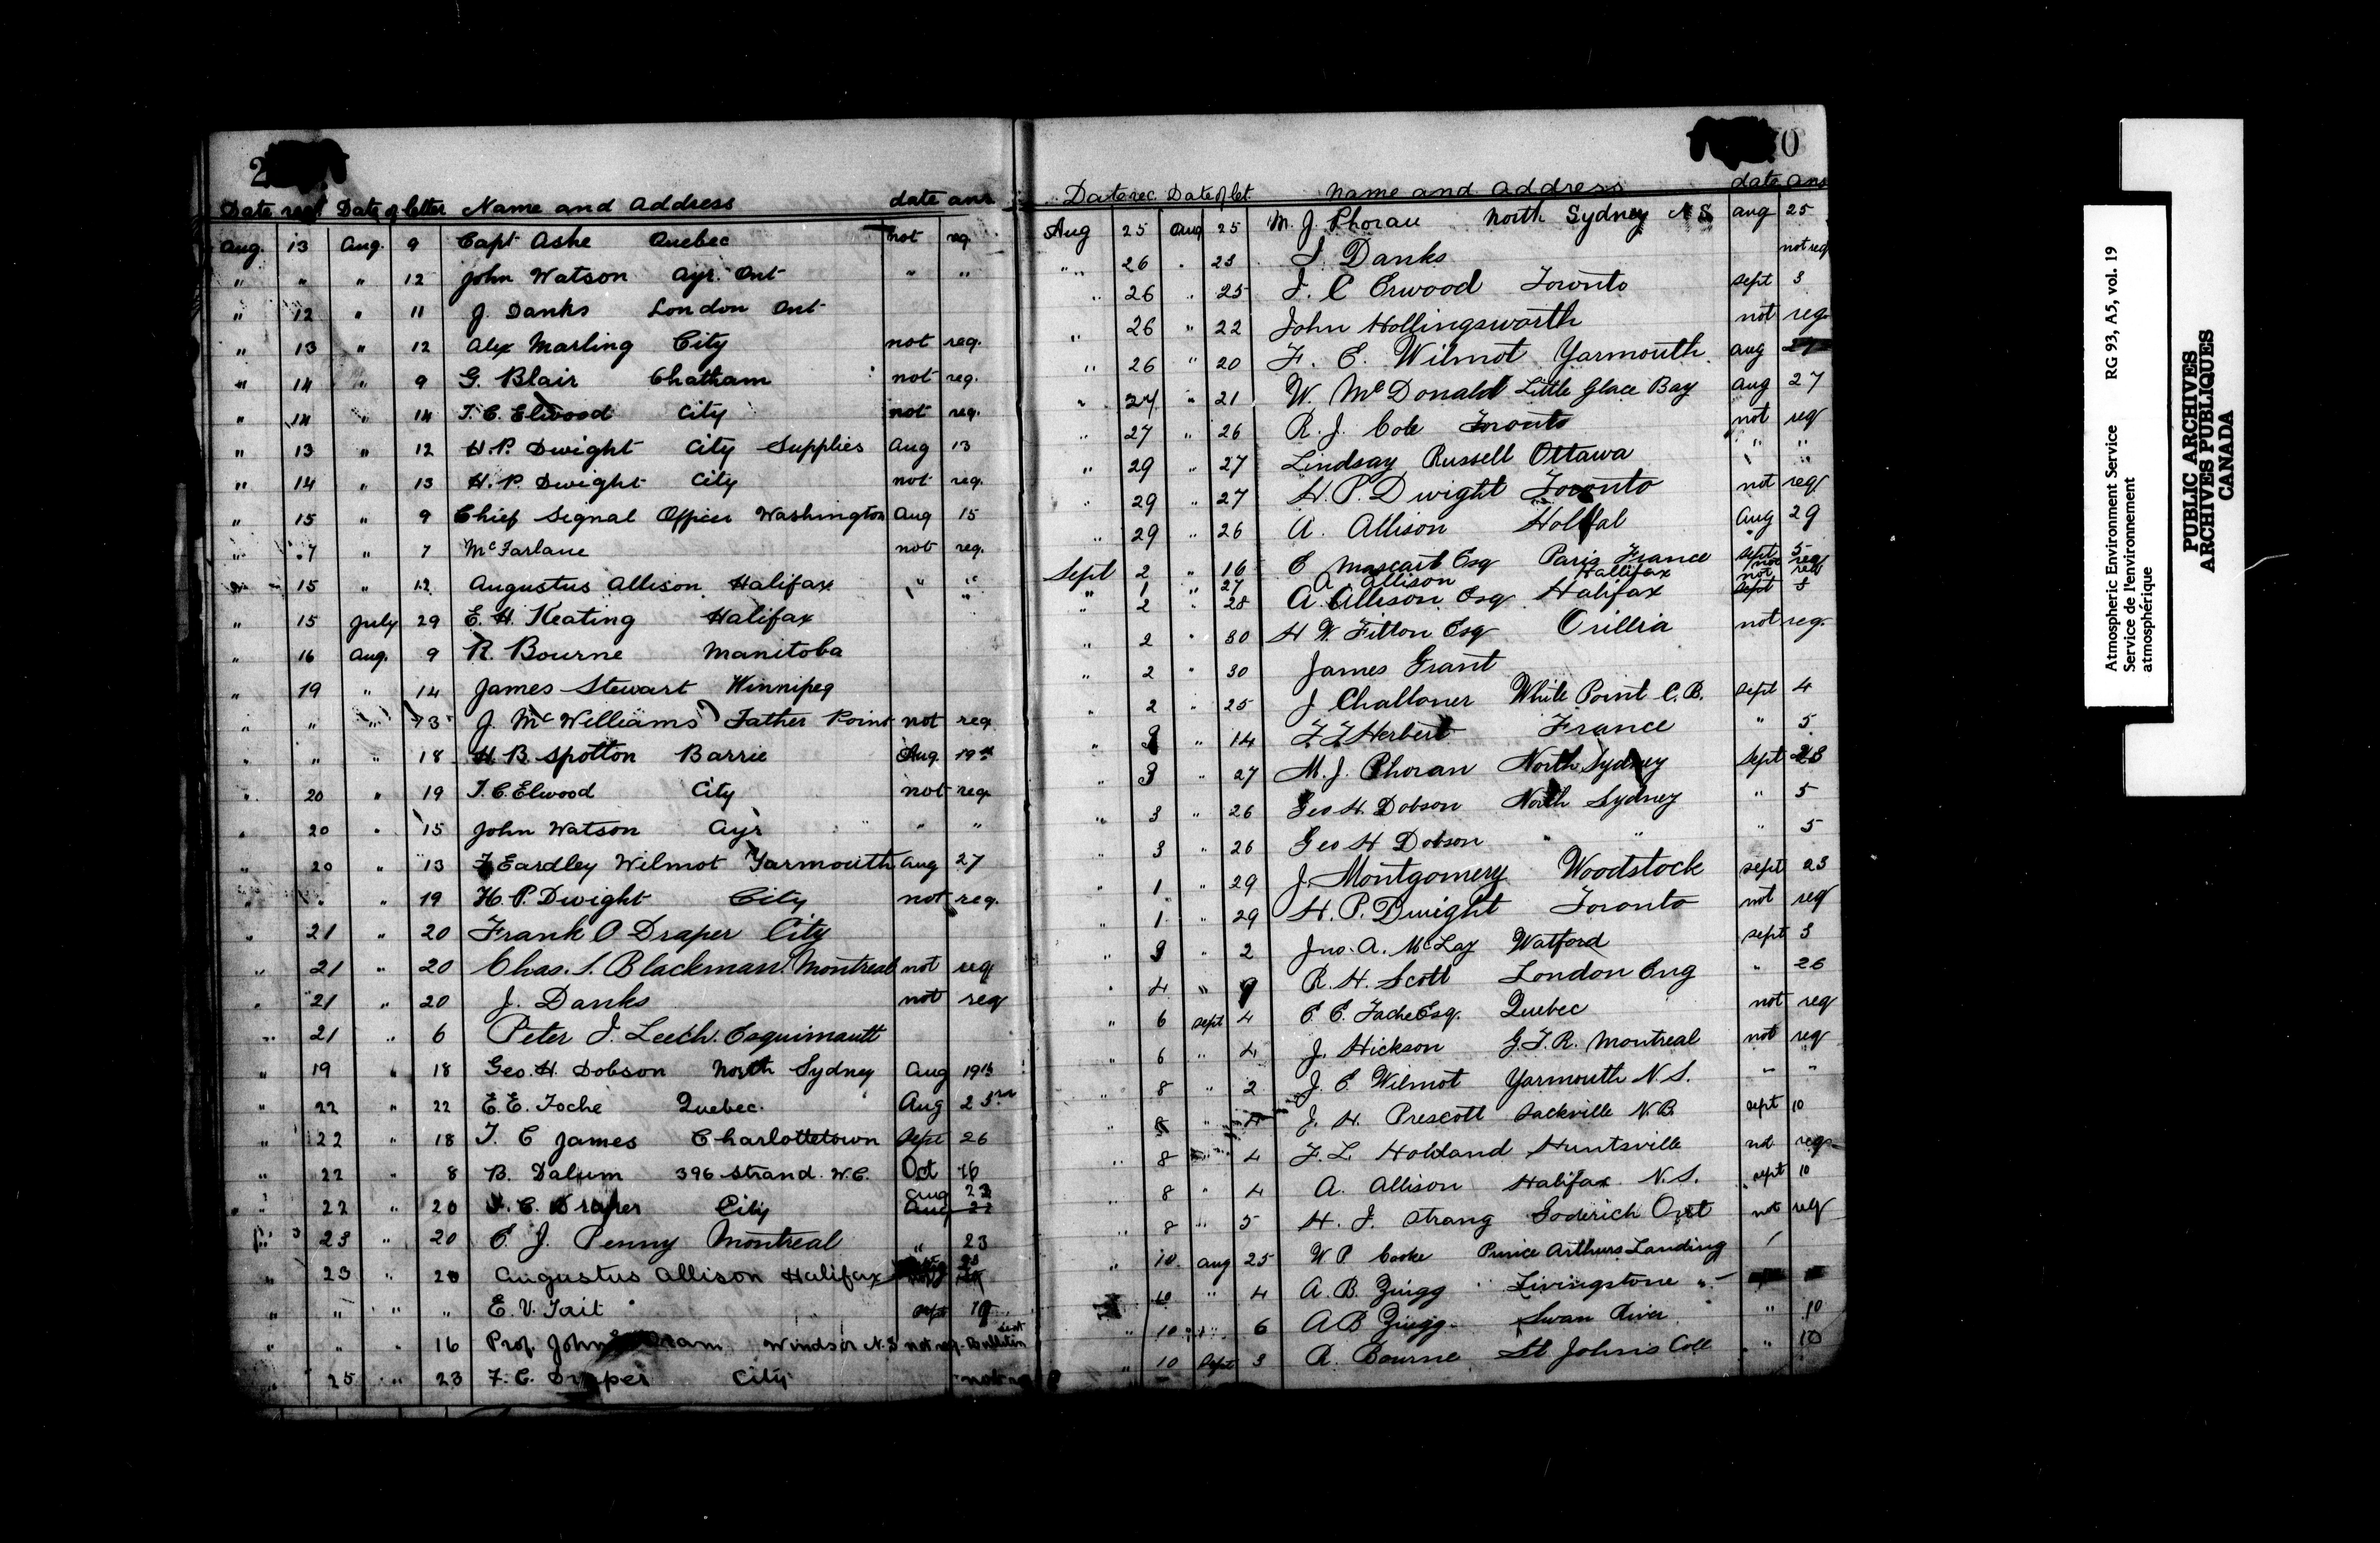 2
Date rec'd Date of letter Name and Address date ans
Aug. 13 Aug. 9 Capt Ashe Quebec not req
" " " 12 John Watson Ayr. Ont " "
" 12 " 11 J. Danks London Ont
" 13 " 12 Alex Marling City not req.
" 14 " 9 G. Blair Chatham not req.
" 14 " 14 T. C. Elwood City not req.
" 13 " 12 H. P. Dwight City Supplies Aug 13
" 14 " 13 H. P. Dwight City not req.
" 15 " 9 Chief Signal Officer Washington Aug 15
" 7 " 7 McFarlane not req.
" 15 " 12 Augustus Allison Halifax " "
" 15 July 29 E. H. Keating Halifax
" 16 Aug. 9 R. Bourne Manitoba
" 19 " 14 James Stewart Winnipeg
" " " 13 J. McWilliams Father Point not req
" " " 18 H. B. Spotton Barrie Aug. 19th
" 20 " 19 T. C. Elwood City not req.
" 20 " 15 John Watson Ayr " "
" 20 " 13 F Eardley Wilmot Yarmouth Aug 27
" " " 19 H. P. Dwight City not req.
" 21 " 20 Frank O Draper City
" 21 " 20 Chas. S. Blackman. Montreal not req
" 21 " 20 J. Danks not req
" 21 " 6 Peter J. Leech. Esquimault
" 19 " 18 Geo. H. Dobson North Sydney Aug 19th
" 22 " 22 E. E. Tache Quebec. Aug 23rd
" 22 " 18 T. C James Charlottetown Sept 26
" 22 " 8 B. Dalum 396 Strand. W. C. Oct 16
Aug 23
" 22 " 20 F. C. Draper City Aug 22
" 23 " 20 E. J. Penny Montreal " 23
" 23 " 20 Augustus Allison Halifax
" " " " E. V. Tait Sept 19
" " " 16 Prof. John Windsor N.S not req. Bulletin sent
" 25 " 23 F. C. Draper City not
0
Date rec. Date of let. Name and Address date ans
Aug 25 Aug 25 M. J. Phorau North Sydney N S. Aug 25
" 26 " 23 J. Danks not req
" 26 " 25 T. C Erwood Toronto Sept 3
" 26 " 22 John Hollingsworth not req.
" 26 " 20 F. E. Wilmot Yarmouth. Aug 27
" 27 " 21 W. McDonald Little Glace Bay Aug 27
" 27 " 26 R. J. Cole Toronto not req
" 29 " 27 Lindsay Russell Ottawa " "
" 29 " 27 H. P. Dwight Toronto not req
" 29 " 26 A. Allison Halifax Aug 29
Sept 2 " 16 E Mascart Esq Paris France Sept 5
" 1 " 27 A Allison Hallifax not req
" 2 " 28 A. Allison Esq Halifax Sept 3
" 2 " 30 H W. Fitton Esq Orillia not req.
" 2 " 30 James Grant
" 2 " 25 J Challoner White Point C. B. Sept 4
" 3 " 14 F F Herbert France " 5
" 3 " 27 M. J. Phoran North Sydney Sept 23
" 3 " 26 Geo H. Dobson North Sydney " 5
" 3 " 26 Geo H Dobson " " " 5
" 1 " 29 J. Montgomery Woodstock Sept 23
" 1 " 29 H. P. Dwight Toronto not req
" 3 " 2 Jno. A. McLay Watford Sept 3
" 4 " 9 R. H. Scott London Eng " 26
" 6 Sept 4 E. E. Tache Esq. Quebec not req
" 6 " 4 J. Hickson G. T. R. Montreal not req
" 8 " 2 J. E Wilmot Yarmouth N. S. " "
" 8 " 4 J. H. Prescott Sackville N. B. Sept 10
" 8 " 4 F. L Holdand Huntsville not req
" 8 " 4 A. Allison Halifax N. S. Sept 10
" 8 " 5 H. J. Strang Goderich Ont not req
" 10 Aug 25 W P Cooke Prince Arthurs Landing
" 10 " 4 A. B. Zuigg Livingstone
" 10 " 6 A B Zuigg Swan River " 10
" 10 Sept 3 R. Bourne St John's Coll " 10
Atmospheric Environment Service RG 93, A5, vol. 19
Service de l'environnement
atmosphérique
PUBLIC ARCHIVES
ARCHIVES PUBLIQUES
CANADA